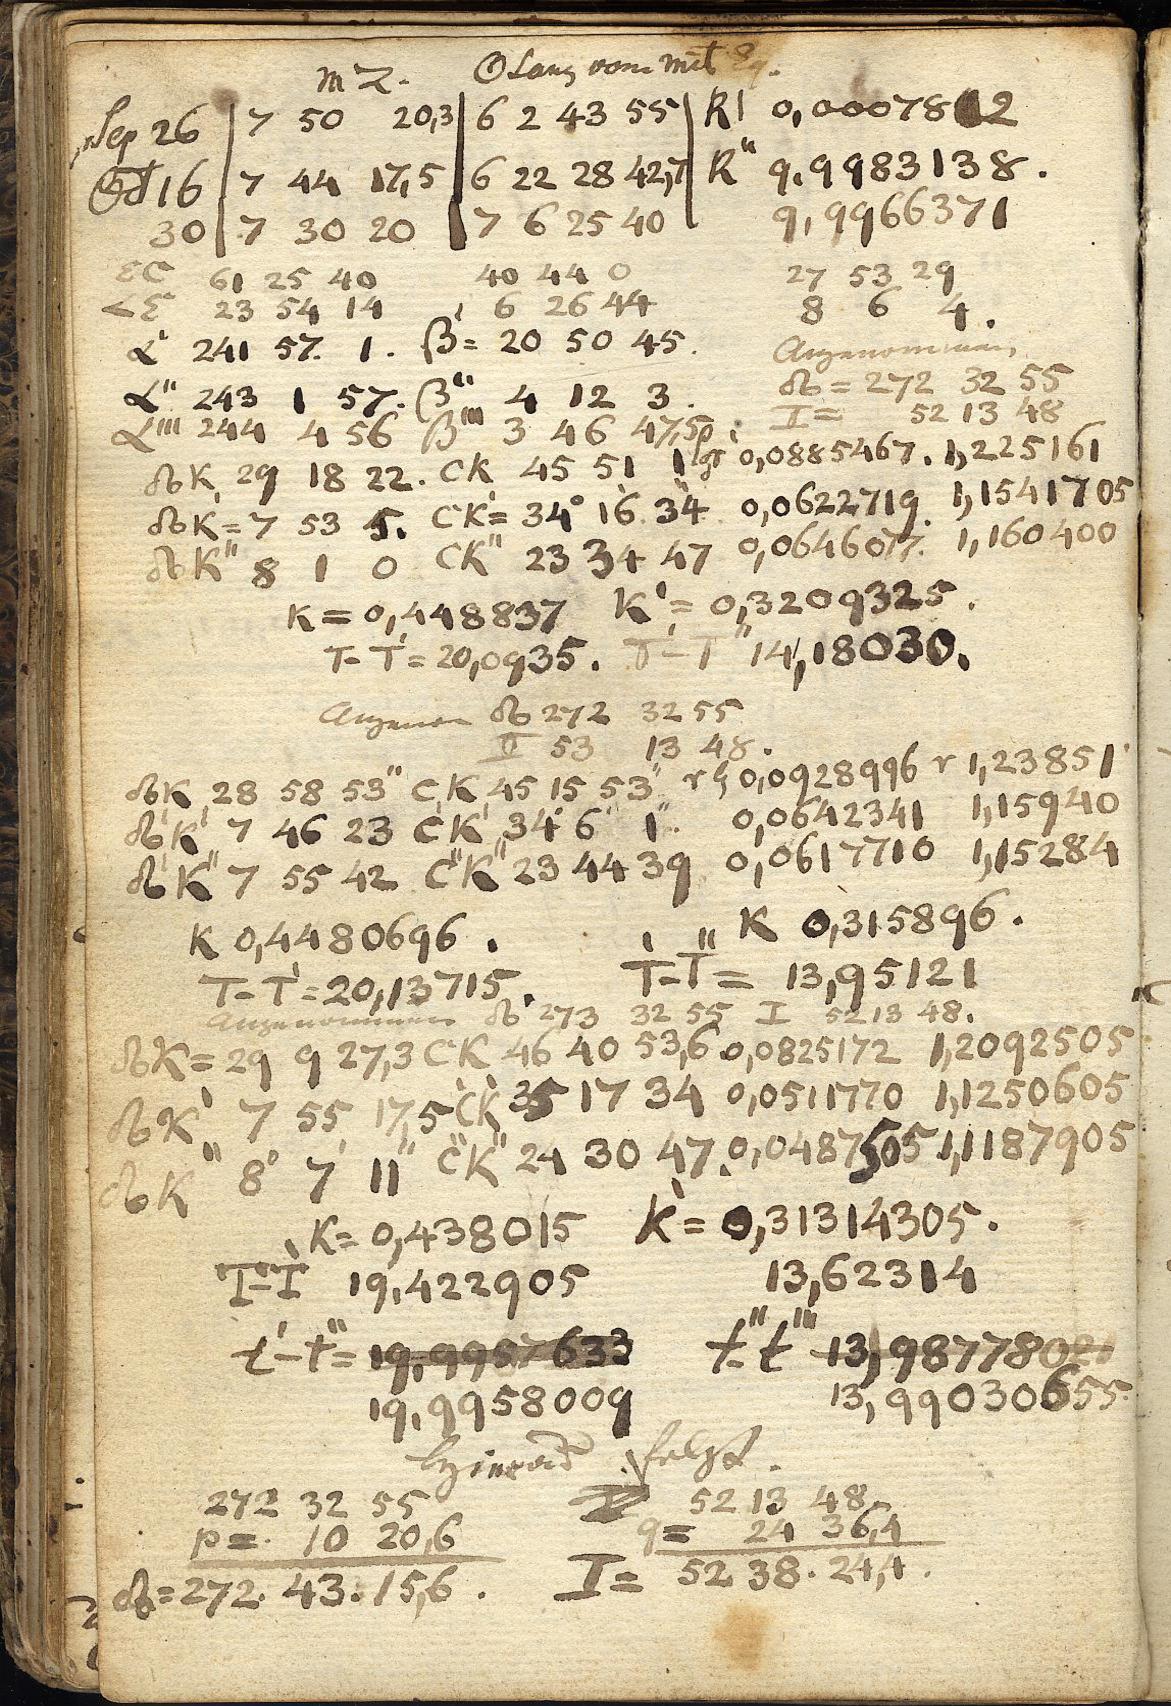 m Z. ☉ Lang vom mit
Sep 26 | 7 50 20,3 | 6 2 43 55 | R' 0,00078 2
Oct 16 | 7 44 17,5 | 6 22 28 42,7 | R" 9.9983138.
30 | 7 30 20 | 7 6 25 40 9,9966371
EC 61 25 40 40 44 0 27 53 29
<E 23 54 14 6 26 44 8 6 4.
α' 241 57. 1. β' = 20 50 45. Angenommen
α" 243 1 57. β" 4 12 3. ☊ = 272 32 55
α''' 244 4 56 β''' 3 46 47,5 I = 52 13 48
☊K 29 18 22. CK 45 51 1 0,0885467. 1,225161
☊K = 7 53 5. CK' = 34° 16' 34" 0,0622719. 1,1541705
☊K" 8 1 0 CK" 23 34 47 0,0646077. 1,160400
K = 0,448837 K' = 0,3209325.
T-T' = 20,0935. T'-T" 14,18030.
Angenom ☊ 272 32 55
I 53 13 48.
☊K 28 58 53" C,K, 45 15 53" 0,0928996 r 1,23851
☊'K' 7 46 23 C'K' 34° 6' 1". 0,0642341 1,15940
☊'K" 7 55 42 C"K" 23 44 39 0,0617710 1,15284
K 0,4480696. K 0,315896.
T-T' = 20,13715. T'-T" = 13,95121
Angenommen ☊ 273 32 55 I 52 13 48.
☊K = 29 9 27,3 CK 46 40 53,6 0,0825172 1,2092505
☊K' 7 55 17,5 C'K' 35 17 34 0,0511770 1,1250605
☊K" 8° 7' 11" C"K" 24 30 47. 0,0487505 1,1187905
K = 0,438015 K' = 0,31314305.
T-T' 19,422905 13,62314
t'-t" = 19,9957633 t"-t''' 13,9877802
19,9958009 13,990306555
Hieraus folgt.
272 32 55 52 13 48.
p = 10 20,6 q = 24 36,4
☊ = 272. 43. 15,6. I = 52 38. 24,4.